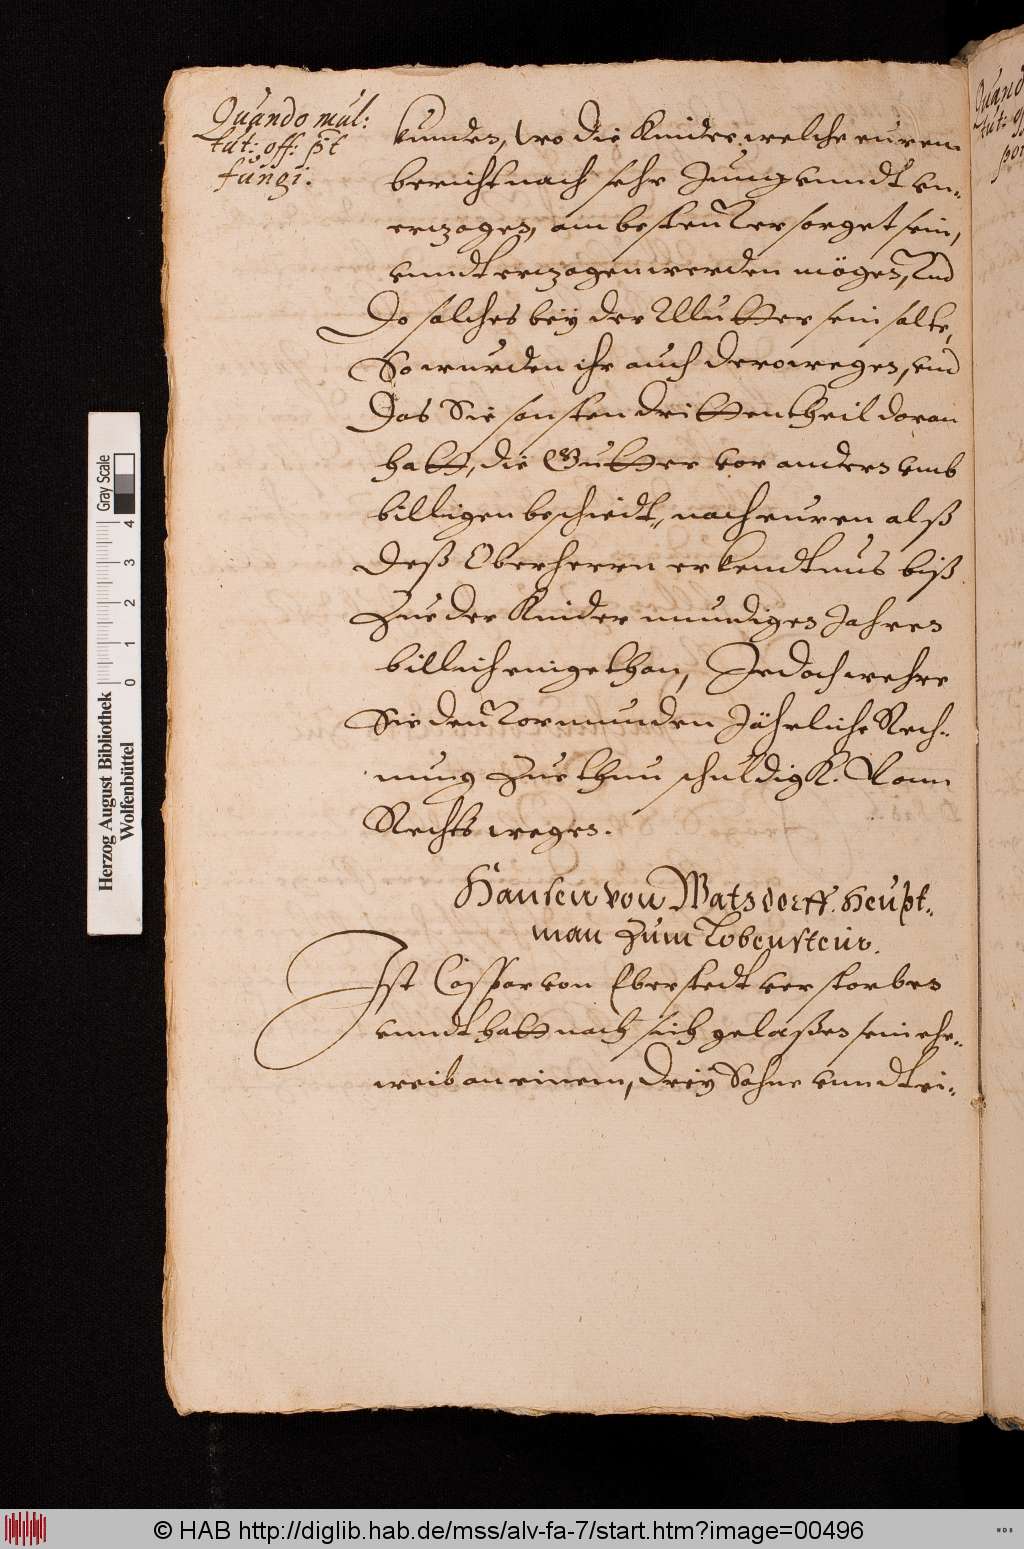 Quando mul:
tut: off: p̄t
fungi.
kunden, wo die Kinder, welche eurem
bericht nach sehr Jung vnndt vn-
erzogen, am besten versorget sein,
vnndt erzogen werden mögen, Vnd
Do solches bey der Mutter sein solte,
So wurden ihr auch derowegen, vnd
Das Sie sonsten dritten theil doran
hatt, die Gutter vor andern vmb
billigen bescheidt, nach euren alß
deß Oberherrn erkendtnus biß
Zue der Kinder mundigen Jahren
billich eingethan, Jedoch wehre
Sie den Vormunden Jährliche Rech-
nung zue thun schuldig V. Vonn
Rechts wegen.
Hansen von Watzdorff. Heupt-
man Zum Lobenstein.
Ist Caspar von Eberstedt verstorben
vnndt hatt nach sich gelaßen sein ehe-
weib an einem, Drey Sohne vnndt ei-
Quand
tut: of
por
Gray Scale
0 1 2 3 4
Herzog August Bibliothek
Wolfenbüttel
© HAB http://diglib.hab.de/mss/alv-fa-7/start.htm?image=00496